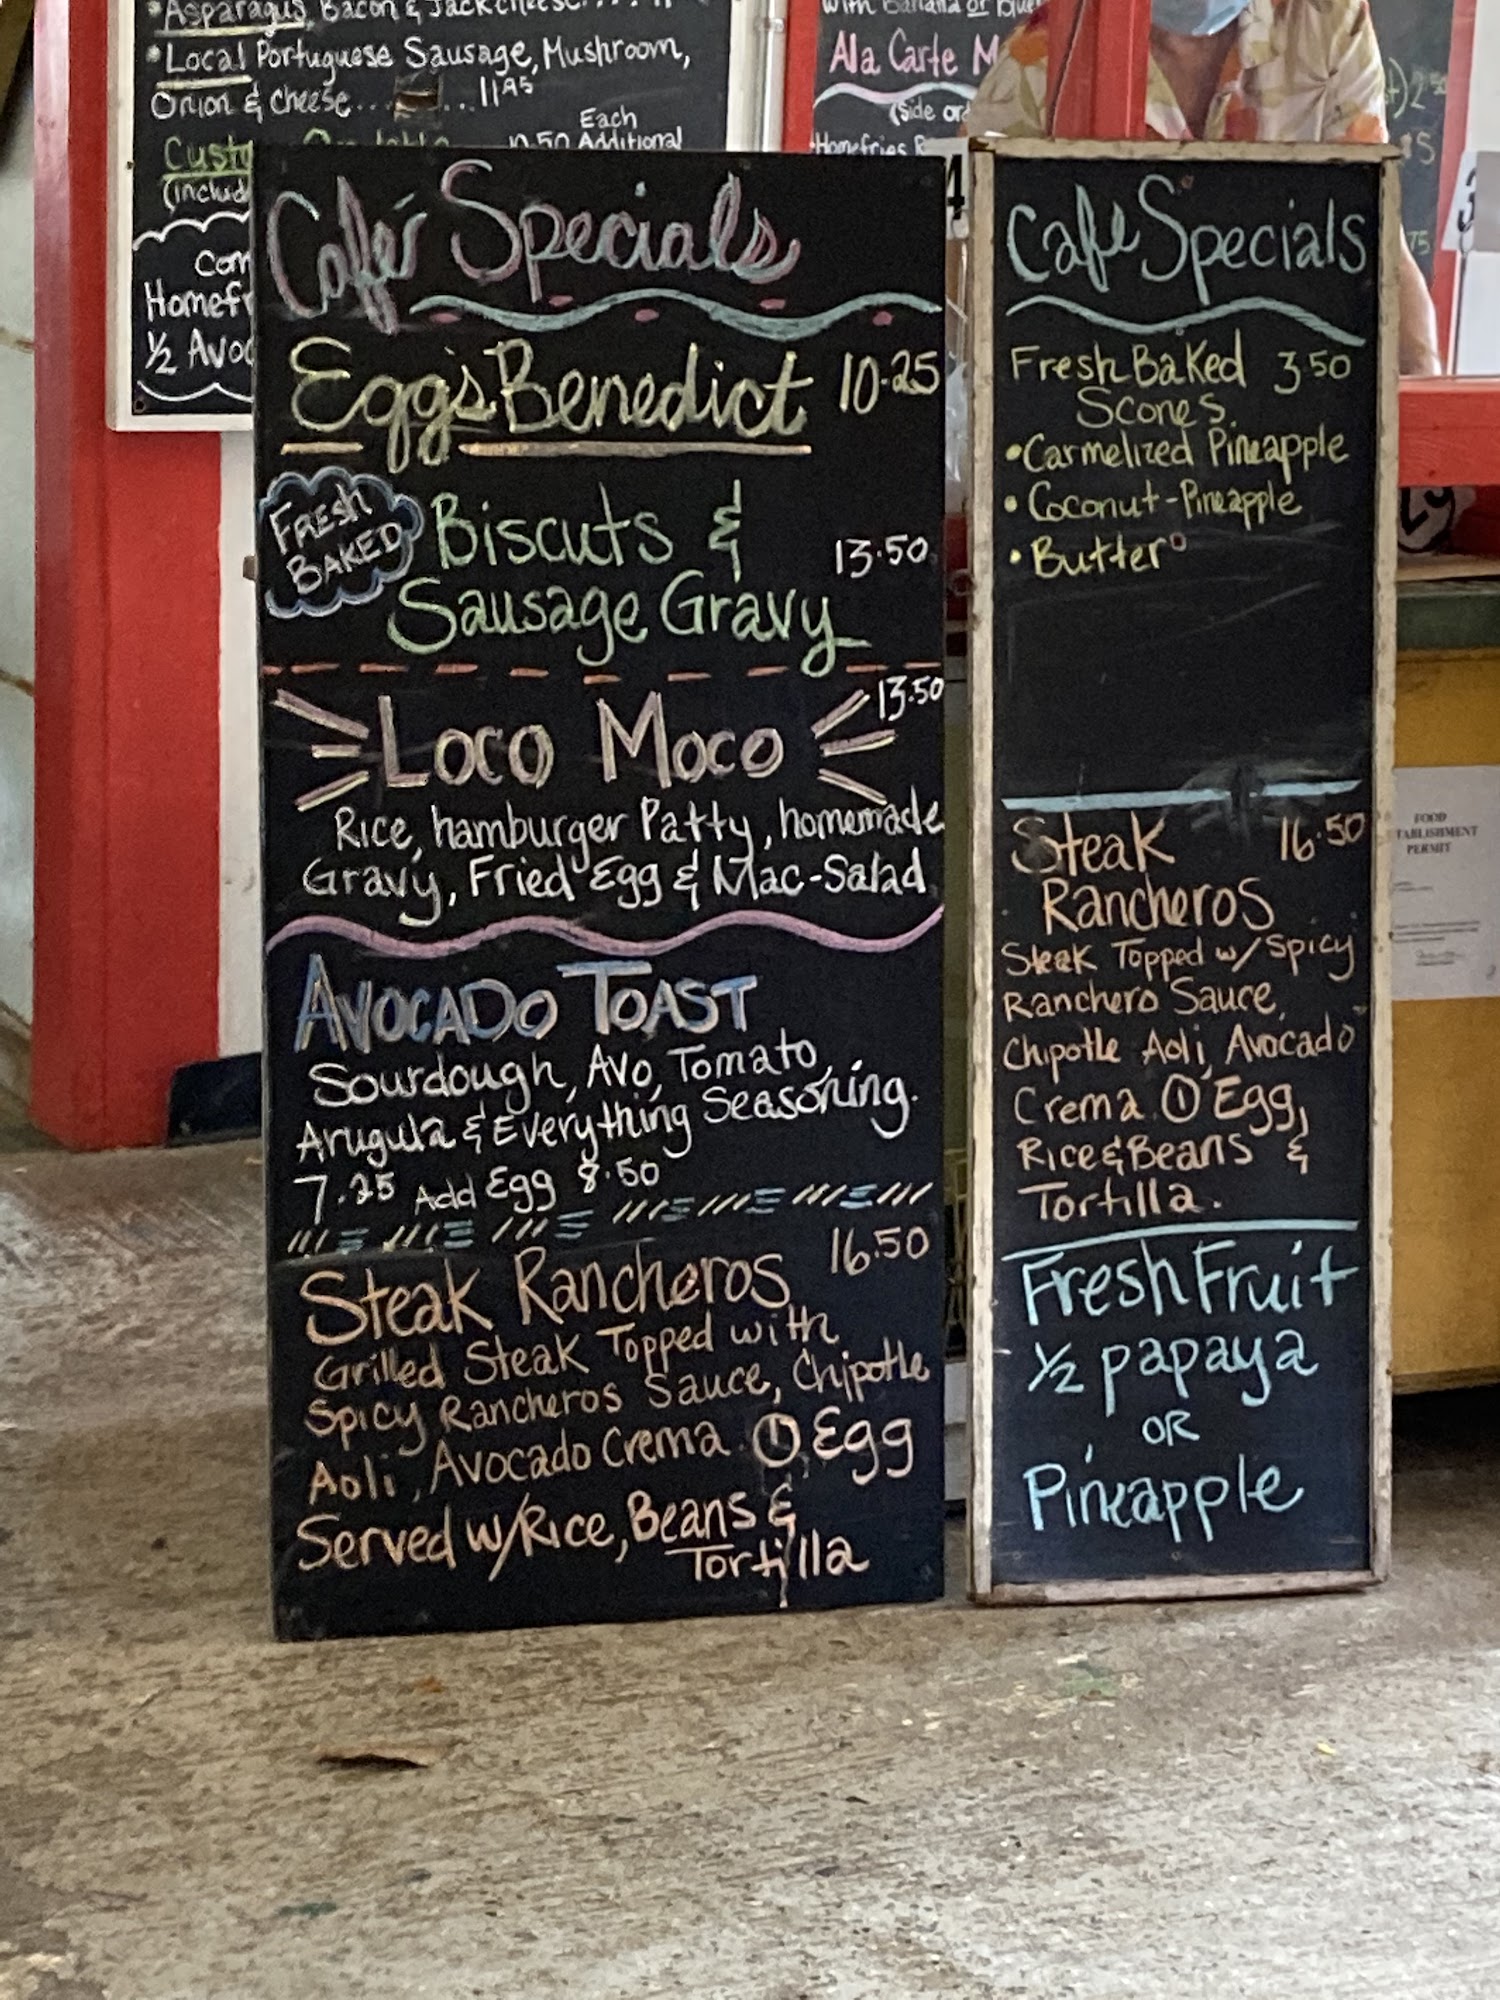 Asparagus, Bacon & Jack cheese
• Local Portuguese Sausage, Mushroom,
Onion & cheese........11.95
Each
10.50 Additional
(includ
Com
Homefr
½ Avoc
with Banana or Blue
Ala Carte M
(Side ord
Homefries
Café Specials
Egg's Benedict 10.25
FRESH
BAKED
Biscuts &
Sausage Gravy 13.50
Loco Moco 13.50
Rice, hamburger Patty, homemade
Gravy, Fried Egg & Mac-Salad
AVOCADO TOAST
Sourdough, Avo, Tomato,
Arugula & Everything Seasoning.
7.25 Add Egg 8.50
Steak Rancheros 16.50
Grilled Steak Topped with
Spicy Rancheros Sauce, Chipotle
Aoli, Avocado Crema ① Egg
Served w/Rice, Beans &
Tortilla
Cafe Specials
Fresh Baked 3.50
Scones
• Carmelized Pineapple
• Coconut-Pineapple
• Butter
Steak 16.50
Rancheros
Steak Topped w/ Spicy
Ranchero Sauce,
Chipotle Aoli, Avocado
Crema ① Egg,
Rice & Beans &
Tortilla.
Fresh Fruit
½ papaya
OR
Pineapple
FOOD
TABLISHMENT
PERMIT